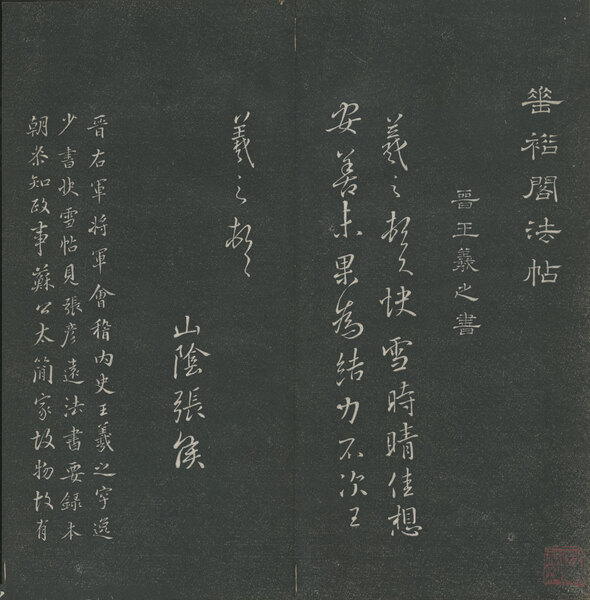 華裕閣法帖
晉王羲之書
羲之頓首快雪時晴佳想
安善未果為結力不次王
羲之頓首
山陰張侯
晉右軍將軍會稽內史王羲之字逸
少書快雪帖見張彥遠法書要錄本
朝參知政事蘇公太簡家故物故有